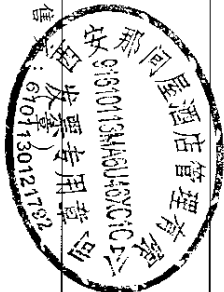 西安那间屋酒店管理有限公司
91610113MA6U46XC1C
发票专用章
6101130121792
售
：（章）